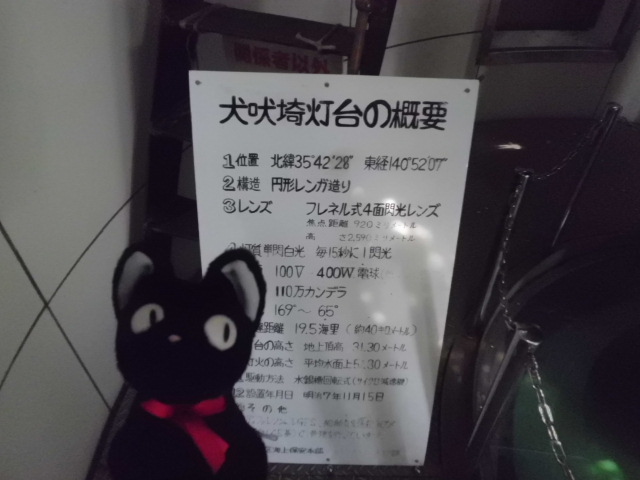 関係者以外
犬吠埼灯台の概要
1 位置 北緯35°42′28″ 東経140°52′07″
2 構造 円形レンガ造り
3 レンズ フレネル式4面閃光レンズ
焦点距離 920ミリメートル
高 さ2,590ミリメートル
灯質 単閃白光 毎15秒に1閃光
100V 400W 電球
110万カンデラ
169°~ 65°
距離 19.5海里 (約40キロメートル)
台の高さ 地上頂高 31.30メートル
灯火の高さ 平均水面上5 .30メートル
駆動方法 水銀槽回転式(サイクロ減速機)
設置年月日 明治7年11月15日
その他